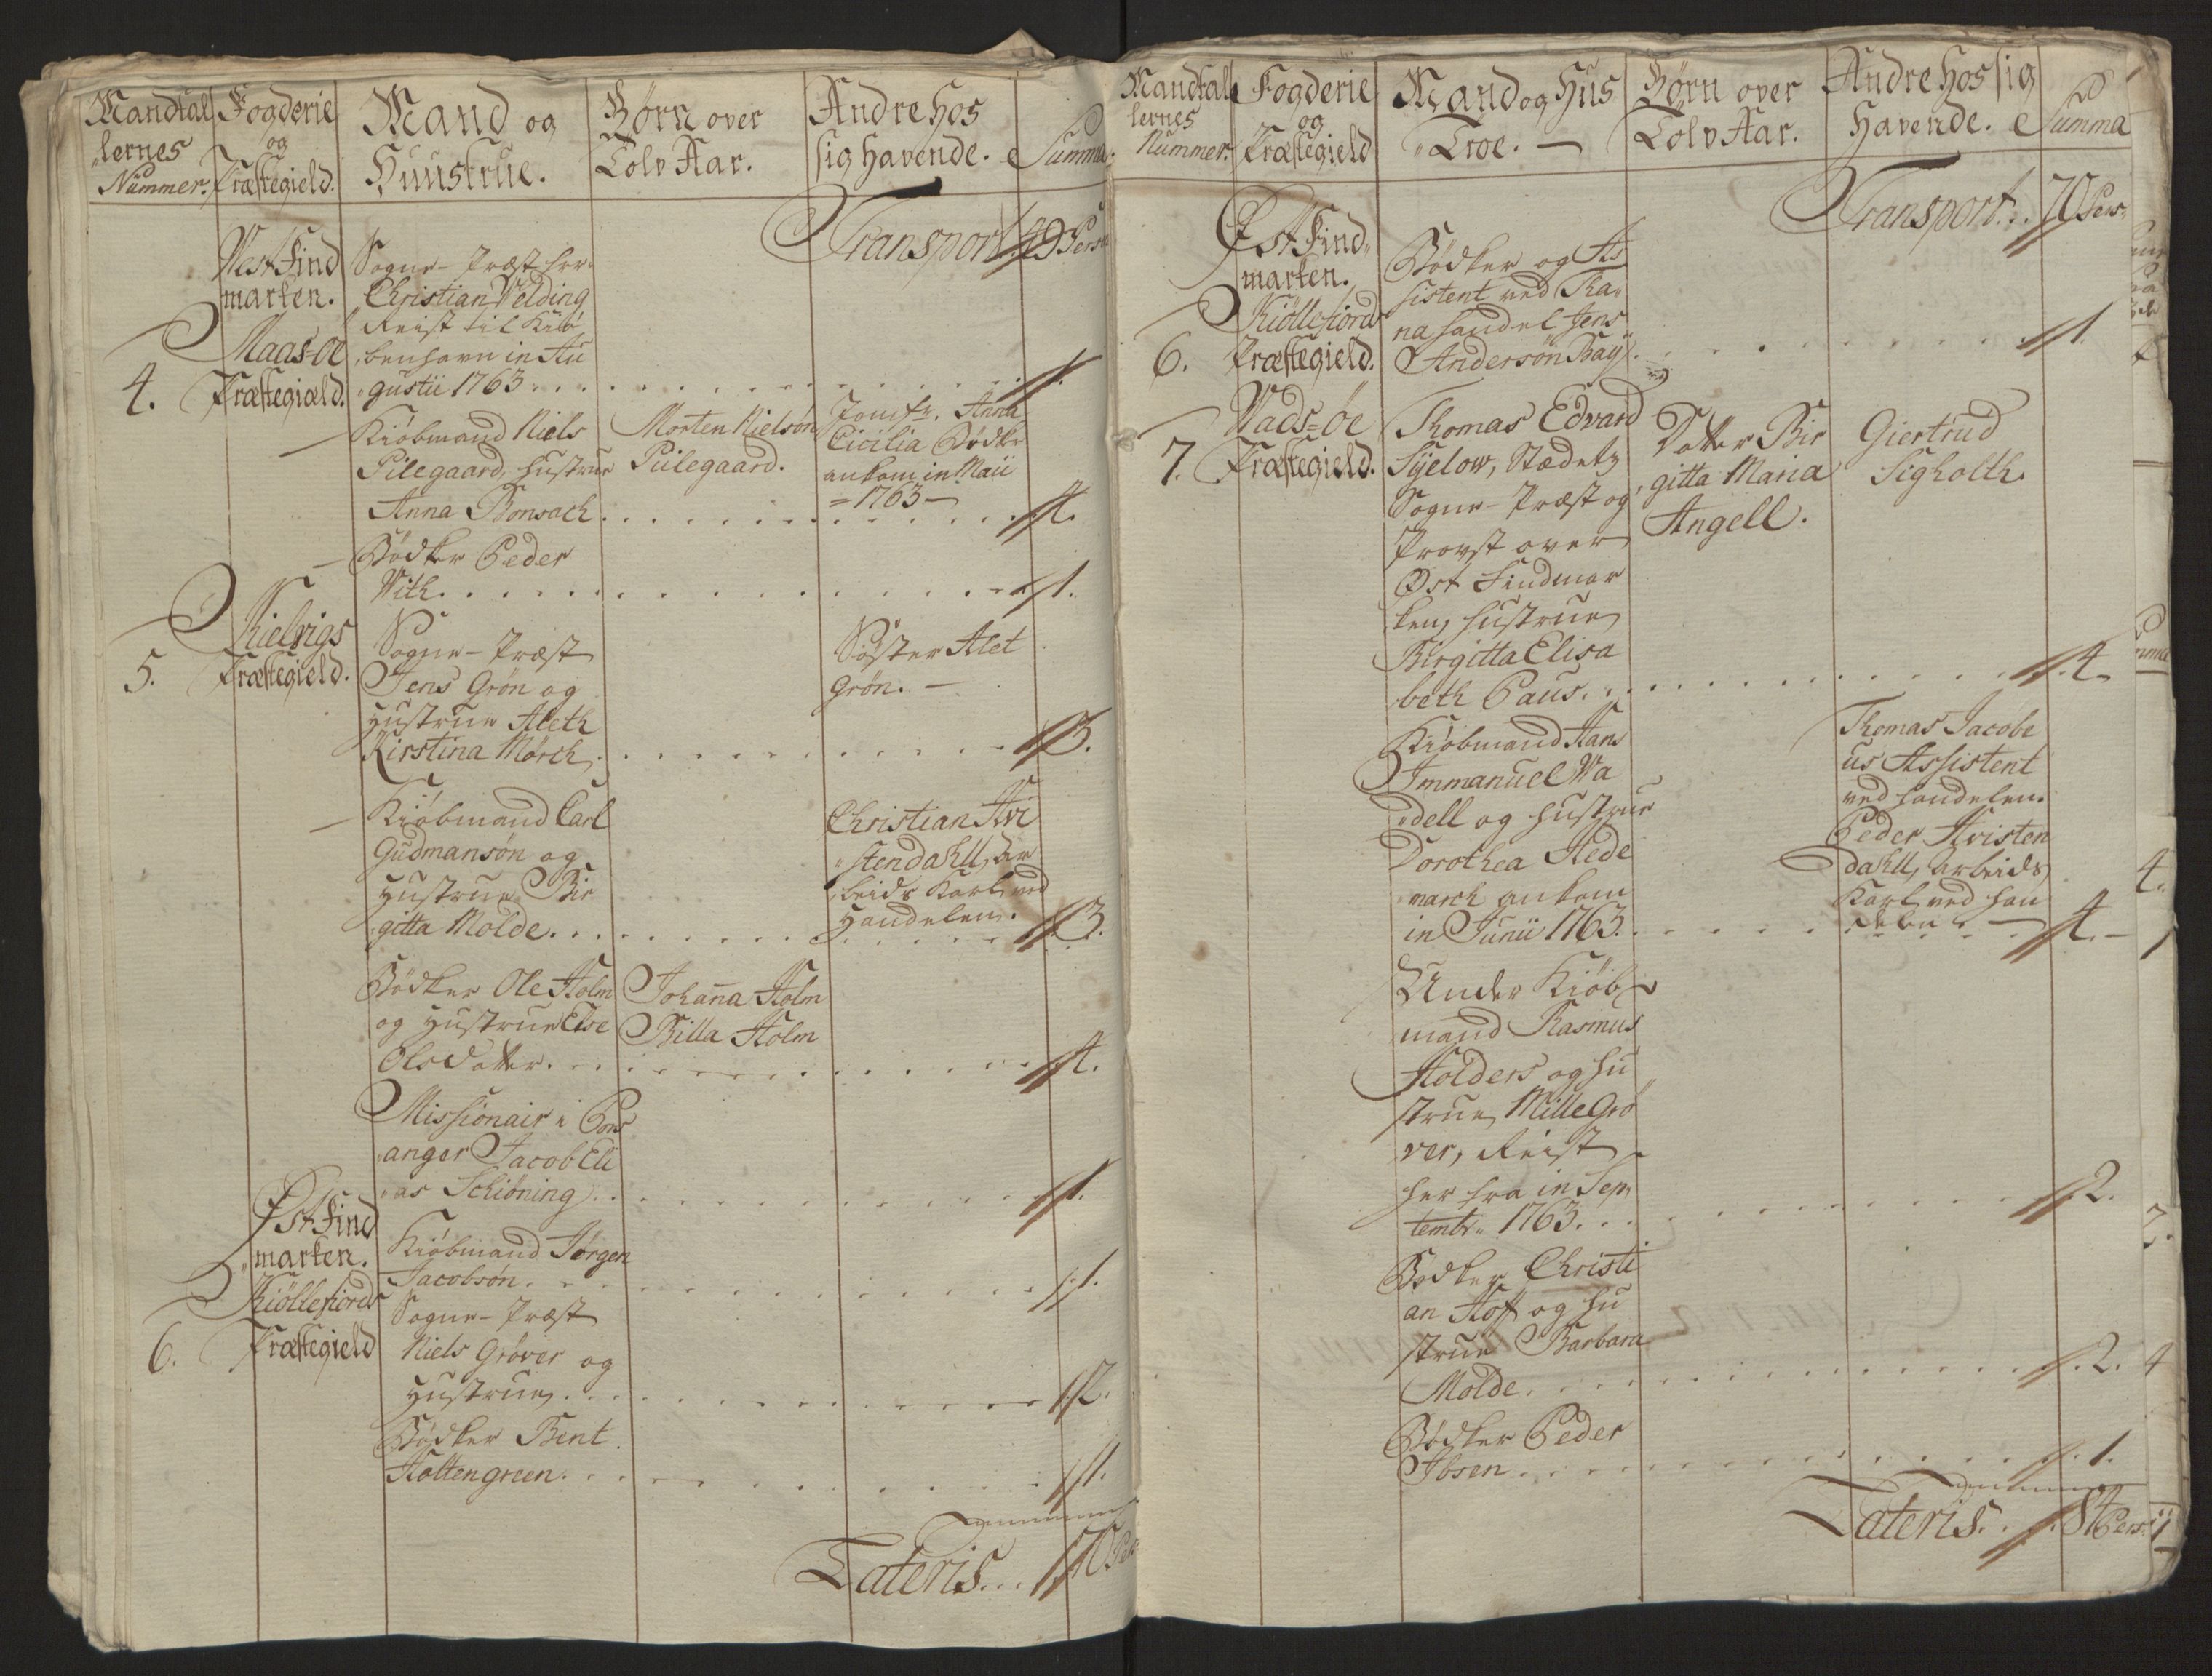 Mandtal
lernes
Nummer.
Fogderie
og
Præstegield.
Mand og
Huustrue.
Børn over
Tolv Aar.
Andre Hos
sig Havende.
Summa.
Transport 49 Pers
Vest Find
marken.
Maas-øe
4. Præstegiæld.
Sogne-Præst Hrr.
Christian Velding
Reist til Kiø
benhavn in Au
gustii 1763 . . . 1.
Kiøbmand Niels
Pilegaard, Hustrue
Anna Bonsach . . . 4.
Morten Nielsøn
Piilegaard.
Jomfr. Anna
Cicilia Bødkr
ankom in Maii
=1763—
Bødker Peder
With . . . 1.
Kielvigs
5. Præstegield.
Sogne-Præst
Jens Grøn og
Hustrue Aleth
Kirstina Mørch . . . 3.
Søster Alet
Grøn. —
Kiøbmand Carl
Gudmansøn og
Hustrue Bir
gitta Molde . . . 3.
Christian Avi
stendahll, Ar
beids Karl ved
Handelen.
Bødker Ole Holm
og Hustrue Else
Olsdatter . . . 4.
Johanna Holm
Billa Holm
Missionair i Pors
anger Jacob Eli
as Schiøning . . . 1.
Øst Find
marken.
Kiøllefiords
6. Præstegield
Kiøbmand Jørgen
Jacobsøn . . . 1.
Sogne-Præst
Niels Grøver og
Hustrue . . . 2.
Bødker Bent
Holtengreen . . . 1.
Lateris . . . 70 Per
Mandtal
lernes
Nummer.
Fogderie
og
Præstegield
Mand og Hus
Troe. —
Børn over
Tolv Aar.
Andre Hos sig
Havende.
Summa
Transport . . 70 Pers
Øst Find
marken.
Kiøllefiords
6. Præstegield.
Bødker og As
sistent ved Ka
na Handel Jens
Andersøn Bay . . . 1.
Vads-øe
7. Præstegield.
Thomas Edvard
Syelow, Stædetz
Sogne-Præst og
Provst over
Øst Findmar
ken, Hustrue
Birgitta Elisa
beth Paus . . . 4
Datter Bir
gitta Maria
Angell.
Giertrud
Sigholth.
Kiøbmand Hans
Immanuel Wa
dell og Hustrue
Dorothea Hede
march ankom
in Junii 1763 . . . 4.
Thomas Jacobe
us Assistent
ved Handelen.
Peder Avisten
dahll, Arbeids
Karl ved Han
delen
Under Kiøb
mand Rasmus
Holders og Hu
strue Mille Grø
ver, Reist
her fra in Sep
tembr. 1763 . . . 2.
Bødker Christi
an Hoff og Hu
strue Barbara
Molde . . . 2.
Bødker Peder
Ibsen . . . 1.
Lateris . . . 84 Pers